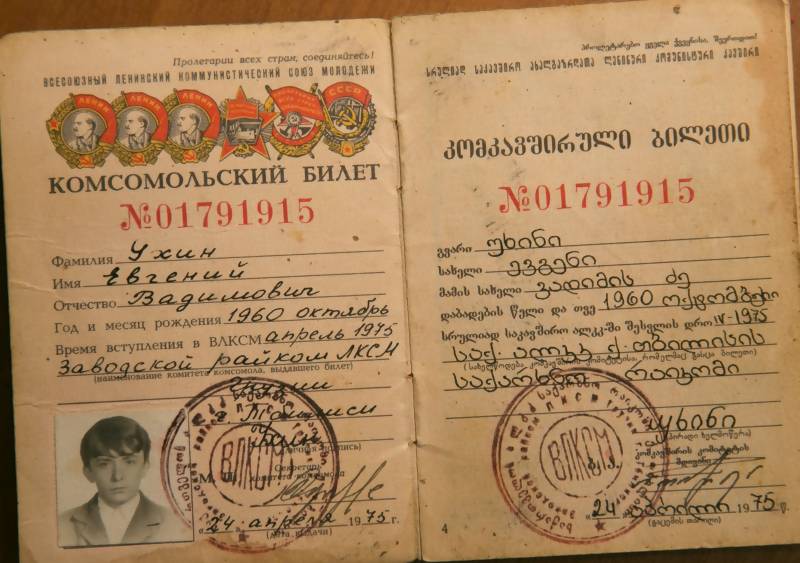 Пролетарии всех стран, соединяйтесь!
ВСЕСОЮЗНЫЙ ЛЕНИНСКИЙ КОММУНИСТИЧЕСКИЙ СОЮЗ МОЛОДЕЖИ
ЛЕНИН ЛЕНИН ЛЕНИН СССР
КОМСОМОЛЬСКИЙ БИЛЕТ
№01791915
Фамилия Ухин
Имя Евгений
Отчество Вадимович
Год и месяц рождения 1960 октябрь
Время вступления в ВЛКСМ апрель 1975
Заводской райком ЛКСМ
(наименование комитета комсомола, выдавшего билет)
Грузии
г. Тбилиси
Ухин
(личная подпись)
М. П. Секретарь
комитета комсомола
ВЛКСМ
„24" апреля 1975 г.
(дата выдачи)
პროლეტარებო ყველა ქვეყნისა, შეერთდით!
სრულიად საკავშირო ახალგაზრდათა ლენინური კომუნისტური კავშირი
კომკავშირული ბილეთი
№01791915
გვარი უხინი
სახელი ევგენი
მამის სახელი ვადიმის ძე
დაბადების წელი და თვე 1960 ოქტომბერი
სრულიად საკავშირო ალკკ-ში შესვლის დრო IV-1975
საქ. ალკკ ქ. თბილისის
(სახელწოდება კომკავშირის კომიტეტისა, რომელმაც გასცა ბილეთი)
საქარხნო რაიკომი
უხინი
(პირადი ხელმოწერა)
ბ. ა. კომკავშირის კომიტეტის
მდივანი
ВЛКСМ
„24" აპრილი 1975 წ.
(გაცემის თარიღი)
4